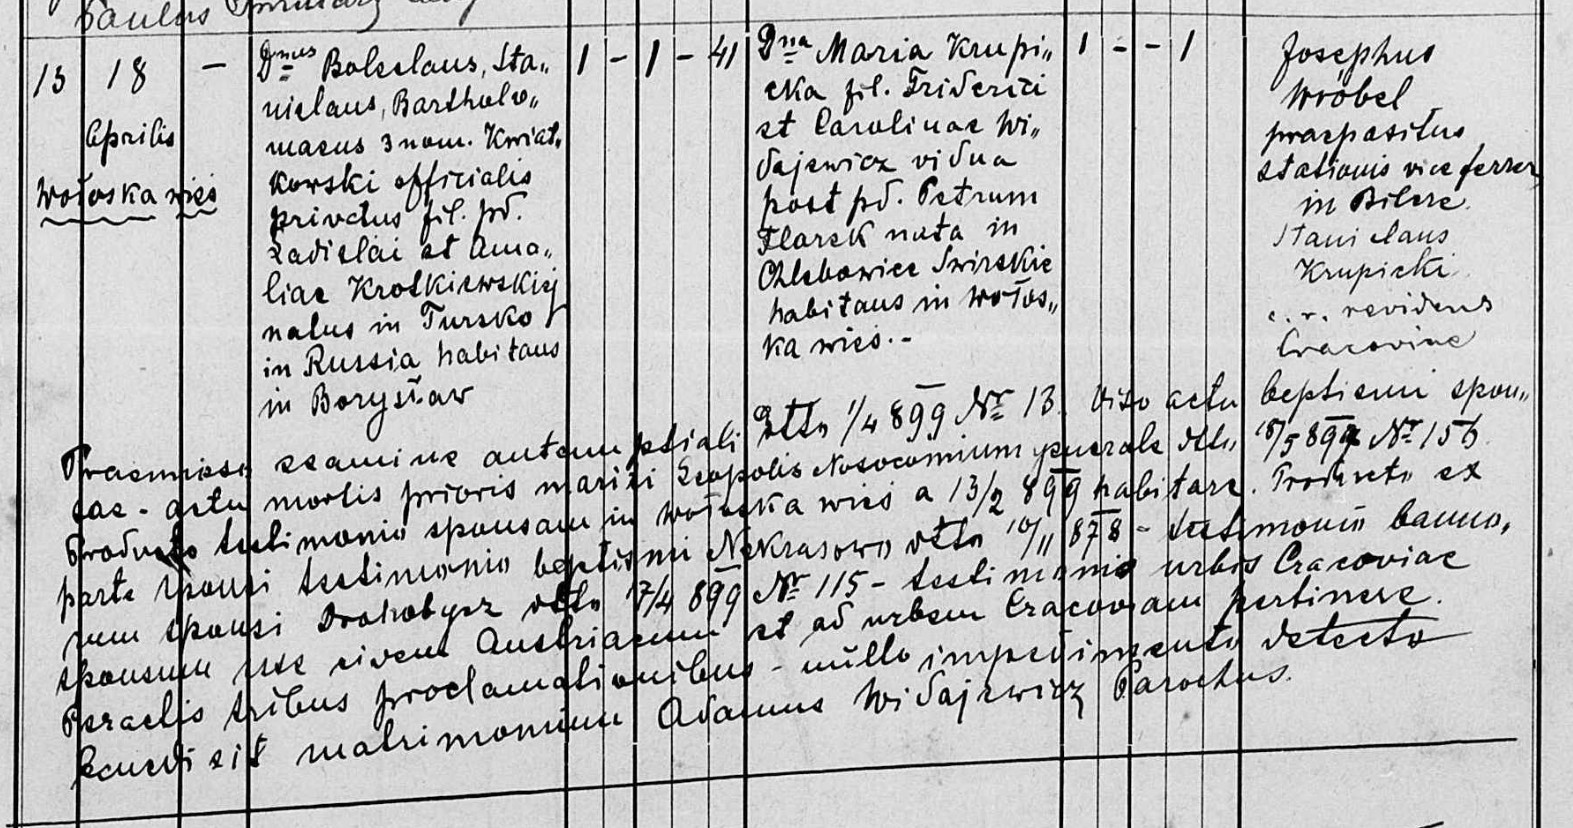 Paulus
13 18 Aprilis
Wołoska wieś
–
Dnus Boleslaus, Sta„
nislaus, Bartholo„
maeus 3 nom. Kwiat„
kowski officialis
privatus fil. pd.
Ladislai et Ama„
liae Krotkiewskiej
natus in Tursko
in Russia habitans
in Borysław
1 - 1 - 41
Dna Maria Krupi„
cka fil. Friderici
et Carolinae Wi„
dajewicz vidua
post pd. Petrum
Flarek nata in
Chlebowice Swirskie
habitans in Wołos„
ka wies.-
1 - - 1
Josephus
Wróbel
praepositus
stationis viae ferrer
in Bilcze.
Stanislaus
Krupicki
c. r. revidens
Cracoviae
Praemisso examine antenuptiali ddto 1/4 899 Nr 13. Viso actu baptismi spon„
sae - actu mortis prioris mariti Leopolis Nosocomium generale ddto 18/5 899 Nr 156
Producto testimonio sponsam in Wołoska wieś a 13/2 899 habitare. Producto ex
parte sponsi testimonio baptismi Nekrasowo ddto 10/11 878 - testimonio banno„
rum sponsi Drohobycz ddto 17/4 899 Nr 115 - testimonio urbis Cracoviae
sponsum esse civem Austriacum et ad urbem Cracoviam pertinere.
Peractis tribus proclamationibus - nullo impedimento detecto
benedixit matrimonium Adamus Widajewicz Parochus.